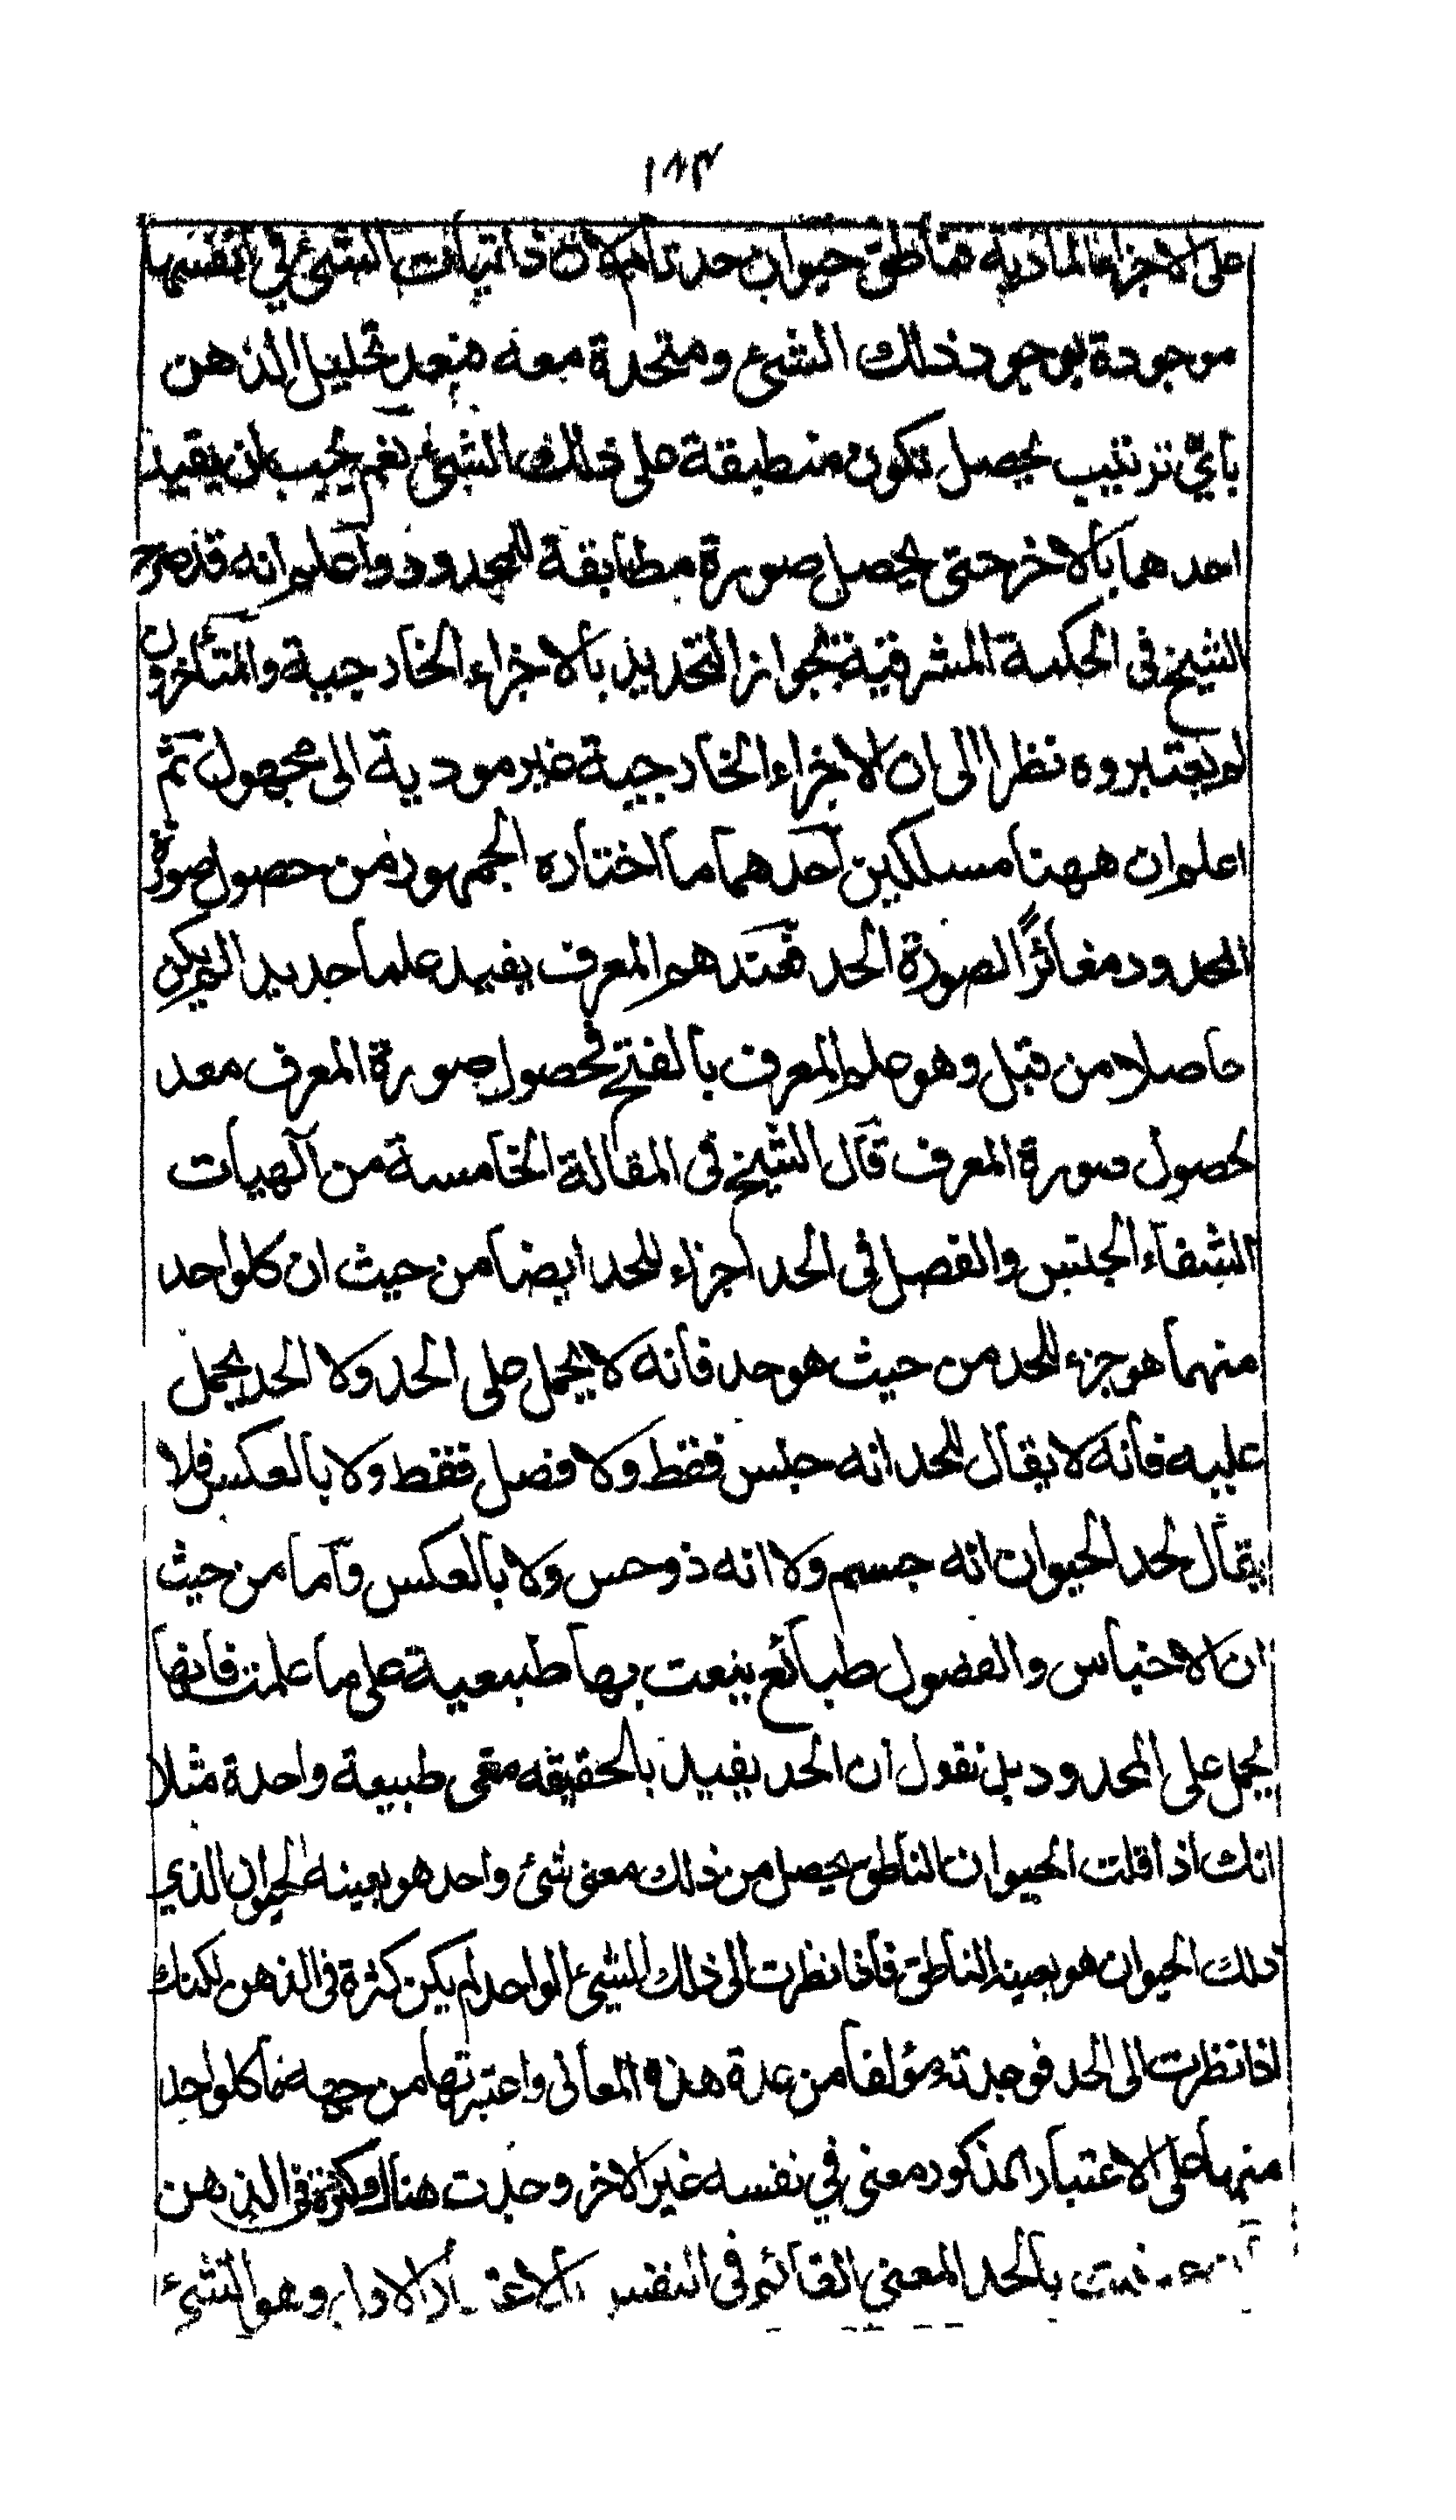 ١٨٣
على الاجزاء المادية فناطق حيوان حد تام لان ذاتيات الشئ في انفسها
موجودة بوجود ذلك الشئ ومتحدة معه فبعد تحليل الذهن
باي ترتيب يحصل تكون منطبقة على ذلك الشئ نعم يجب ان يقيد
احدهما بالاخر حتى يحصل صورة مطابقة للمحدود واعلم انه قد صرح
الشيخ في الحكمة المشرقية بجواز التحديد بالاجزاء الخارجية والمتأخرون
لم يعتبروه نظرا الى ان الاجزاء الخارجية غير مودية الى مجهول ثم
اعلم ان ههنا مسلكين احدهما ما اختاره الجمهور من حصول صورة
المحدود مغائرًا لصورة الحد فعندهم المعرف يفيد علما جديدا لم يكن
حاصلا من قبل وهو علم المعرف بالفتح فحصول صورة المعرف معد
لحصول صورة المعرف قال الشيخ في المقالة الخامسة من الهيات
الشفاء الجنس والفصل في الحد اجزاء للحد ايضا من حيث ان كلواحد
منهما هو جزء للحد من حيث هو حد فانه لا يحمل على الحد ولا الحد يحمل
عليه فانه لا يقال للحد انه جنس فقط ولا فصل فقط ولا بالعكس فلا
يقال لحد الحيوان انه جسم ولا انه ذو حس ولا بالعكس واما من حيث
ان الاجناس والفصول طبائع ينعت بها طبيعية على ما علمت فانها
يحمل على المحدود بل نقول ان الحد يفيد بالحقيقه معنى طبيعة واحدة مثلا
انك اذا قلت الحيوان الناطق يحصل من ذلك معنى شئ واحد هو بعينه الحيوان الذي
ذلك الحيوان هو بعينه الناطق فاذا نظرت الى ذلك الشئ الواحد لم يكن كثرة في الذهن لكنك
اذا نظرت الى الحد فوجدته مؤلفا من عدة هذه المعاني واعتبرتها من جهة ما كلواحد
منها على الاعتبار المذكور معنى في نفسه غير الاخر وجدت هناك كثرة في الذهن
فان عنيت بالحد المعنى القائم في النفس بالاعتبار الاول وهو الشئ